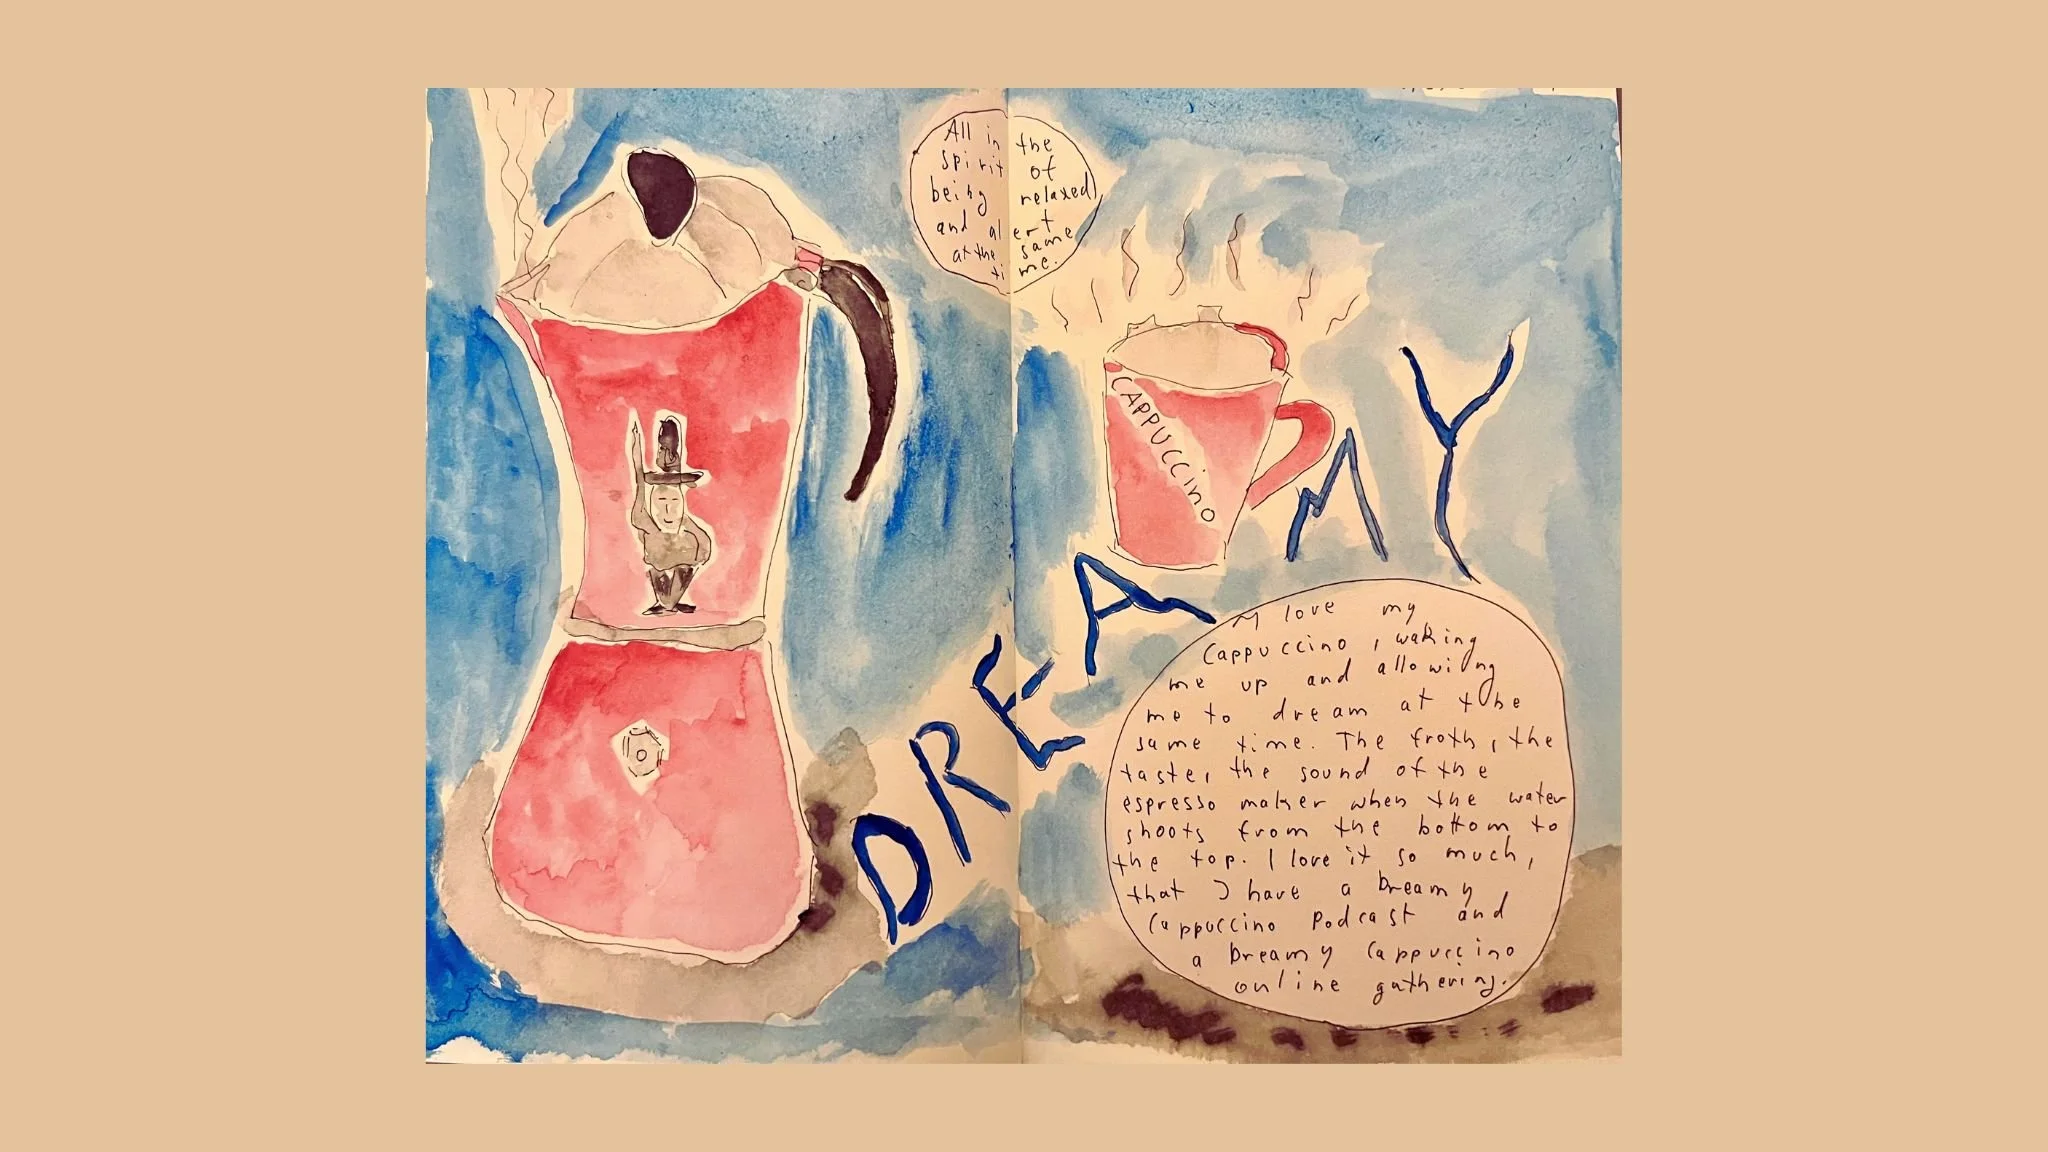 All in the
spirit of
being relaxed
and alert
at the same
time.
CAPPUCCINO
DREAMY
I love my
Cappuccino, waking
me up and allowing
me to dream at the
same time. The froth, the
taste, the sound of the
espresso maker when the water
shoots from the bottom to
the top. I love it so much,
that I have a Dreamy
Cappuccino Podcast and
a Dreamy Cappuccino
online gathering.